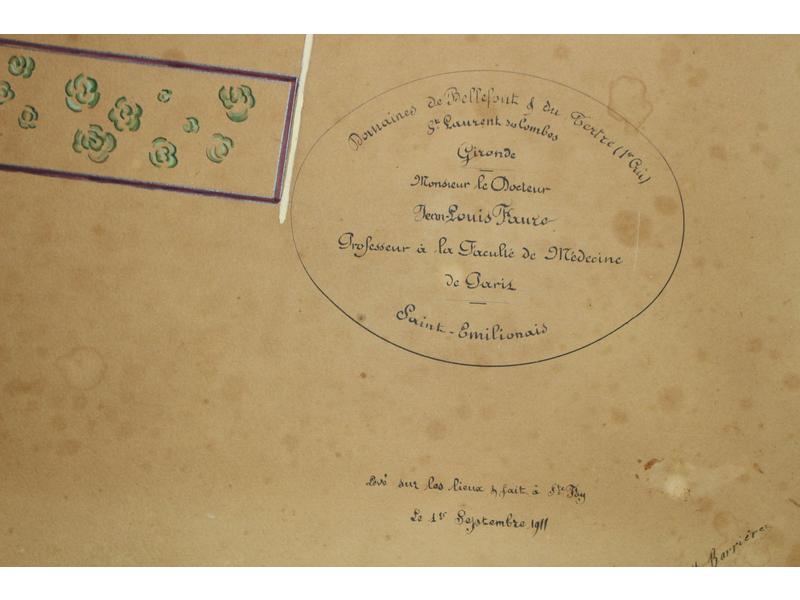 Domaines de Bellefont & du Tertre (1er Crû)
St Laurent des Combes
Gironde
Monsieur le Docteur
Jean-Louis Faure
Professeur à la Faculté de Médecine
de Paris
Saint-Emilionais
Levé sur les lieux & fait à Ste Foy
Le 1er Septembre 1911
Barrière